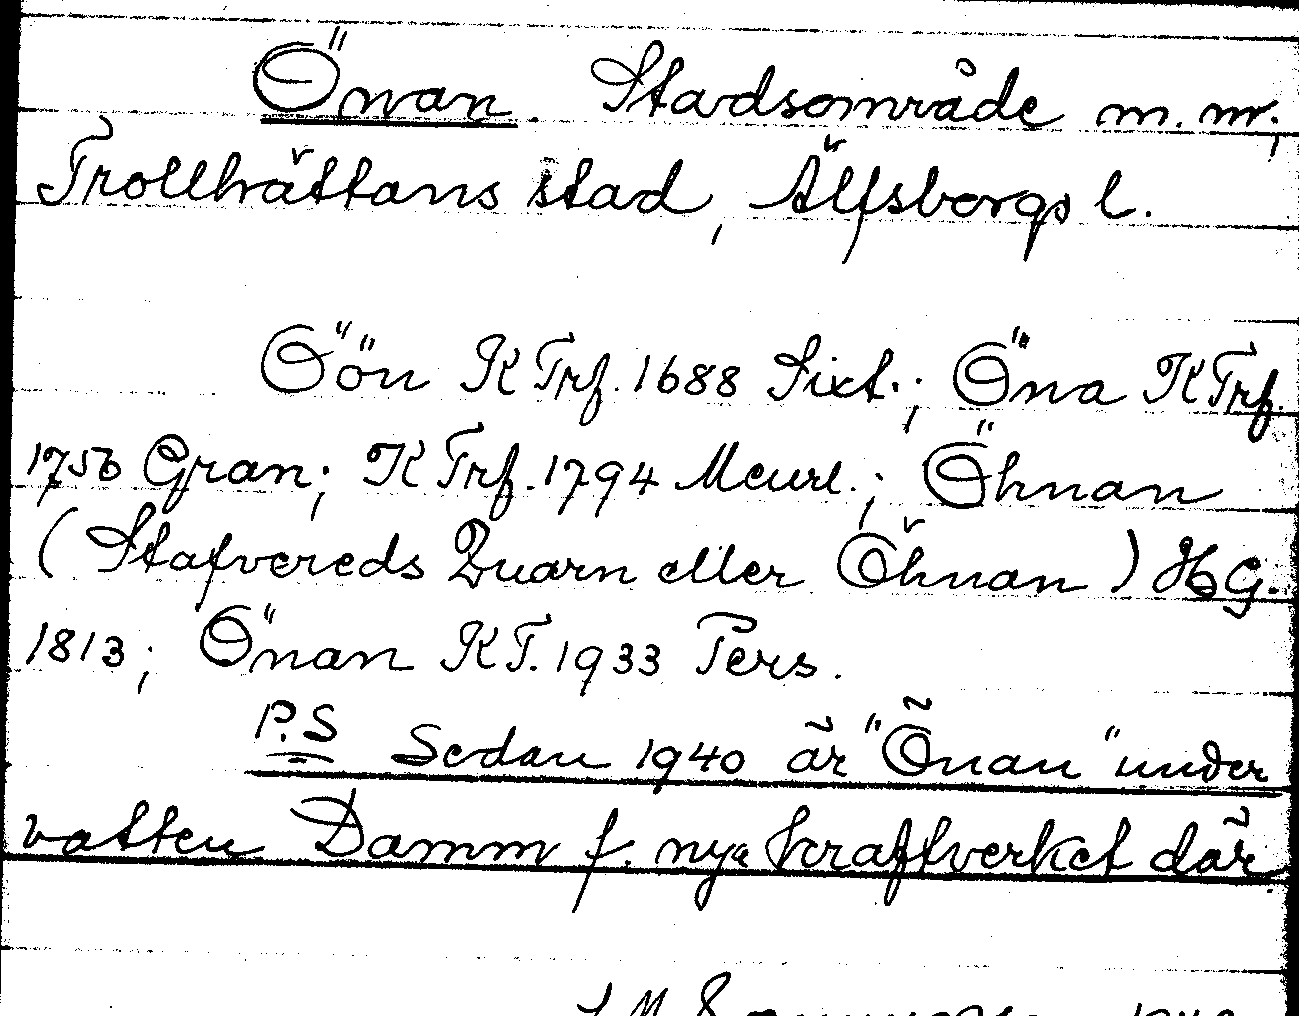 Önan. Stadsområde m. m.,
Trollhättans stad, Älfsborgs l.
Öön KTrf. 1688 Sixt.; Öna KTrf.
1756 Gran; KTrf. 1794 Meurl.; Öhnan
(Stafvereds Quarn eller Öhnan) HG.
1813; Önan KT. 1933 Pers.
P.S Sedan 1940 är "Önan" under
vatten Damm f. nya kraftverket där